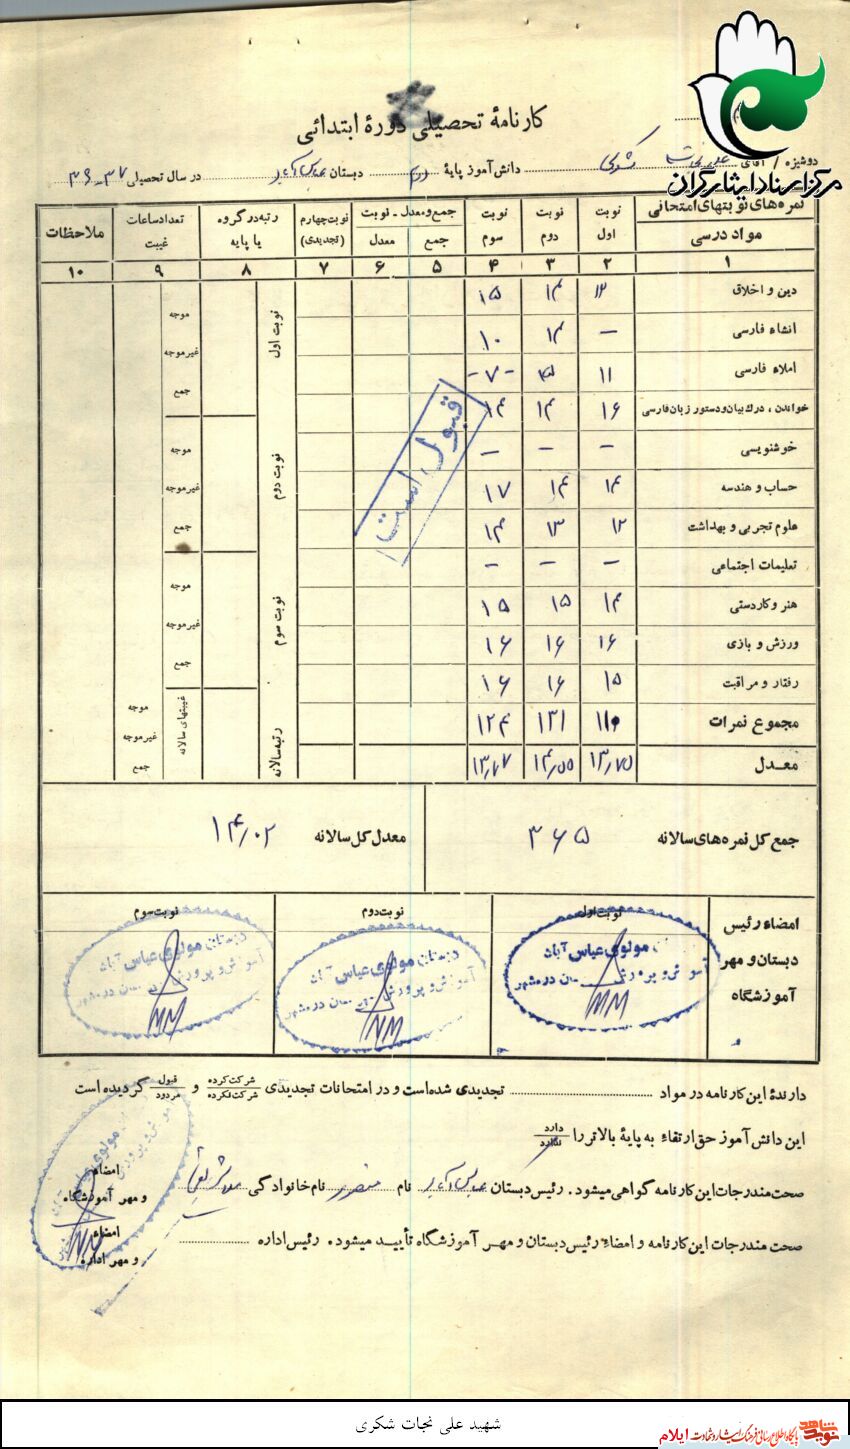 کارنامهٔ تحصیلی دورهٔ ابتدائی
دوشیزه / آقای علی نجات شکری دانش‌آموز پایهٔ دوم دبستان عباس آباد در سال تحصیلی ۳۷-۳۶
مرکز اسناد ایثارگران
نمره‌های نوبتهای امتحانی مواد درسی | نوبت اول | نوبت دوم | نوبت سوم | جمع و معدل ـ نوبت جمع معدل | نوبت چهارم (تجدیدی) | رتبه در گروه یا پایه | تعداد ساعات غیبت | ملاحظات
۱ ۲ ۳ ۴ ۵ ۶ ۷ ۸ ۹ ۱۰
دین و اخلاق ۱۲ ۱۴ ۱۵
انشاء فارسی – ۱۴ ۱۰
املاء فارسی ۱۱ ۱۵ -۷-
خواندن، درک بیان و دستور زبان فارسی ۱۶ ۱۴ ۱۴
خوشنویسی – – –
حساب و هندسه ۱۴ ۱۴ ۱۷
علوم تجربی و بهداشت ۱۲ ۱۳ ۱۴
تعلیمات اجتماعی – – –
هنر و کاردستی ۱۴ ۱۵ ۱۵
ورزش و بازی ۱۶ ۱۶ ۱۶
رفتار و مراقبت ۱۵ ۱۶ ۱۶
مجموع نمرات ۱۱۰ ۱۳۱ ۱۲۴
معدل ۱۳/۷۵ ۱۴/۵۵ ۱۳/۷۷
نوبت اول موجه غیرموجه جمع
نوبت دوم موجه غیرموجه جمع
نوبت سوم موجه غیرموجه جمع
رتبه سالانه غیبتهای سالانه موجه غیرموجه جمع
قبول است
جمع کل نمره‌های سالانه ۳۶۵ معدل کل سالانه ۱۴/۰۲
امضاء رئیس دبستان و مهر آموزشگاه
نوبت اول نوبت دوم نوبت سوم
دبستان مولوی عباس آباد
آموزش و پرورش شهرستان دره‌شهر
دبستان مولوی عباس آباد
آموزش و پرورش شهرستان دره‌شهر
مولوی عباس آباد
آموزش و پرورش شهرستان دره‌شهر
دارندهٔ این کارنامه در مواد تجدیدی شده است و در امتحانات تجدیدی شرکت کرده شرکت نکرده و قبول مردود گردیده است
این دانش‌آموز حق ارتقاء به پایهٔ بالاتر را دارد ندارد
صحت مندرجات این کارنامه گواهی میشود. رئیس دبستان عباس آباد نام منصور نام خانوادگی
امضاء و مهر آموزشگاه
صحت مندرجات این کارنامه و امضاء رئیس دبستان و مهر آموزشگاه تأیید میشود. رئیس اداره
امضاء و مهر اداره
شهید علی نجات شکری
نوید شاهد پایگاه اطلاع رسانی فرهنگ ایثار و شهادت ایلام